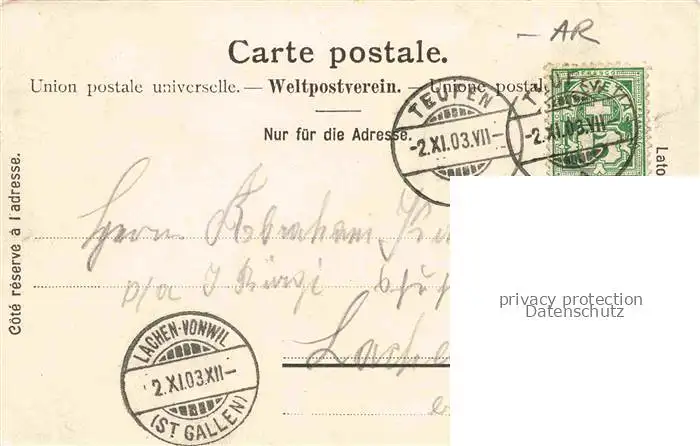 - AR
Carte postale.
Union postale universelle. — Weltpostverein. — Unione postal
Nur für die Adresse.
TEUFEN
-2.XI.03.VII-
-2.XI.03.VII-
FRANCO
Côté réservé à l'adresse.
Lato
Herrn Abraham
p/a J
Lache
privacy protection
Datenschutz
LACHEN-VONWIL
2.XI.03.XII-
(ST GALLEN)